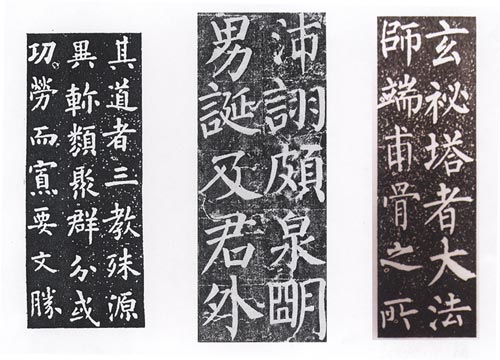 其道者三教殊源
異軫類聚群分或
功勞而寡要文勝
沛詡頗泉明
男誕及君外
玄祕塔者大法
師端甫骨之所